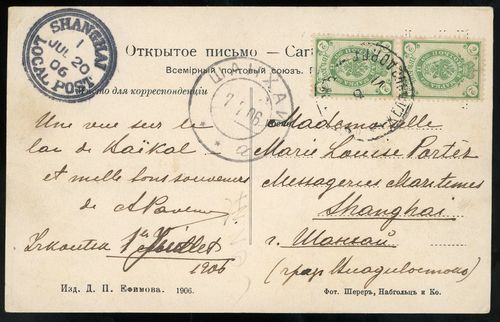 SHANGHAI
1
JUL 20
06
LOCAL POST
Открытое письмо — Car
Всемірный почтовый союзъ.
для корреспонденціи
ШАНХАЙ
7 06
а
Une vue sur le
lac de Baïkal
et mille bons souvenirs
de
Irkoutsk 1er Juillet
1906
Mademoiselle
Marie Louise Portes
Messageries Maritimes
Shanghai
г. Шанхай
Изд. Д. П. Ефимова. 1906.
Фот. Шереръ, Набгольцъ и Ко.